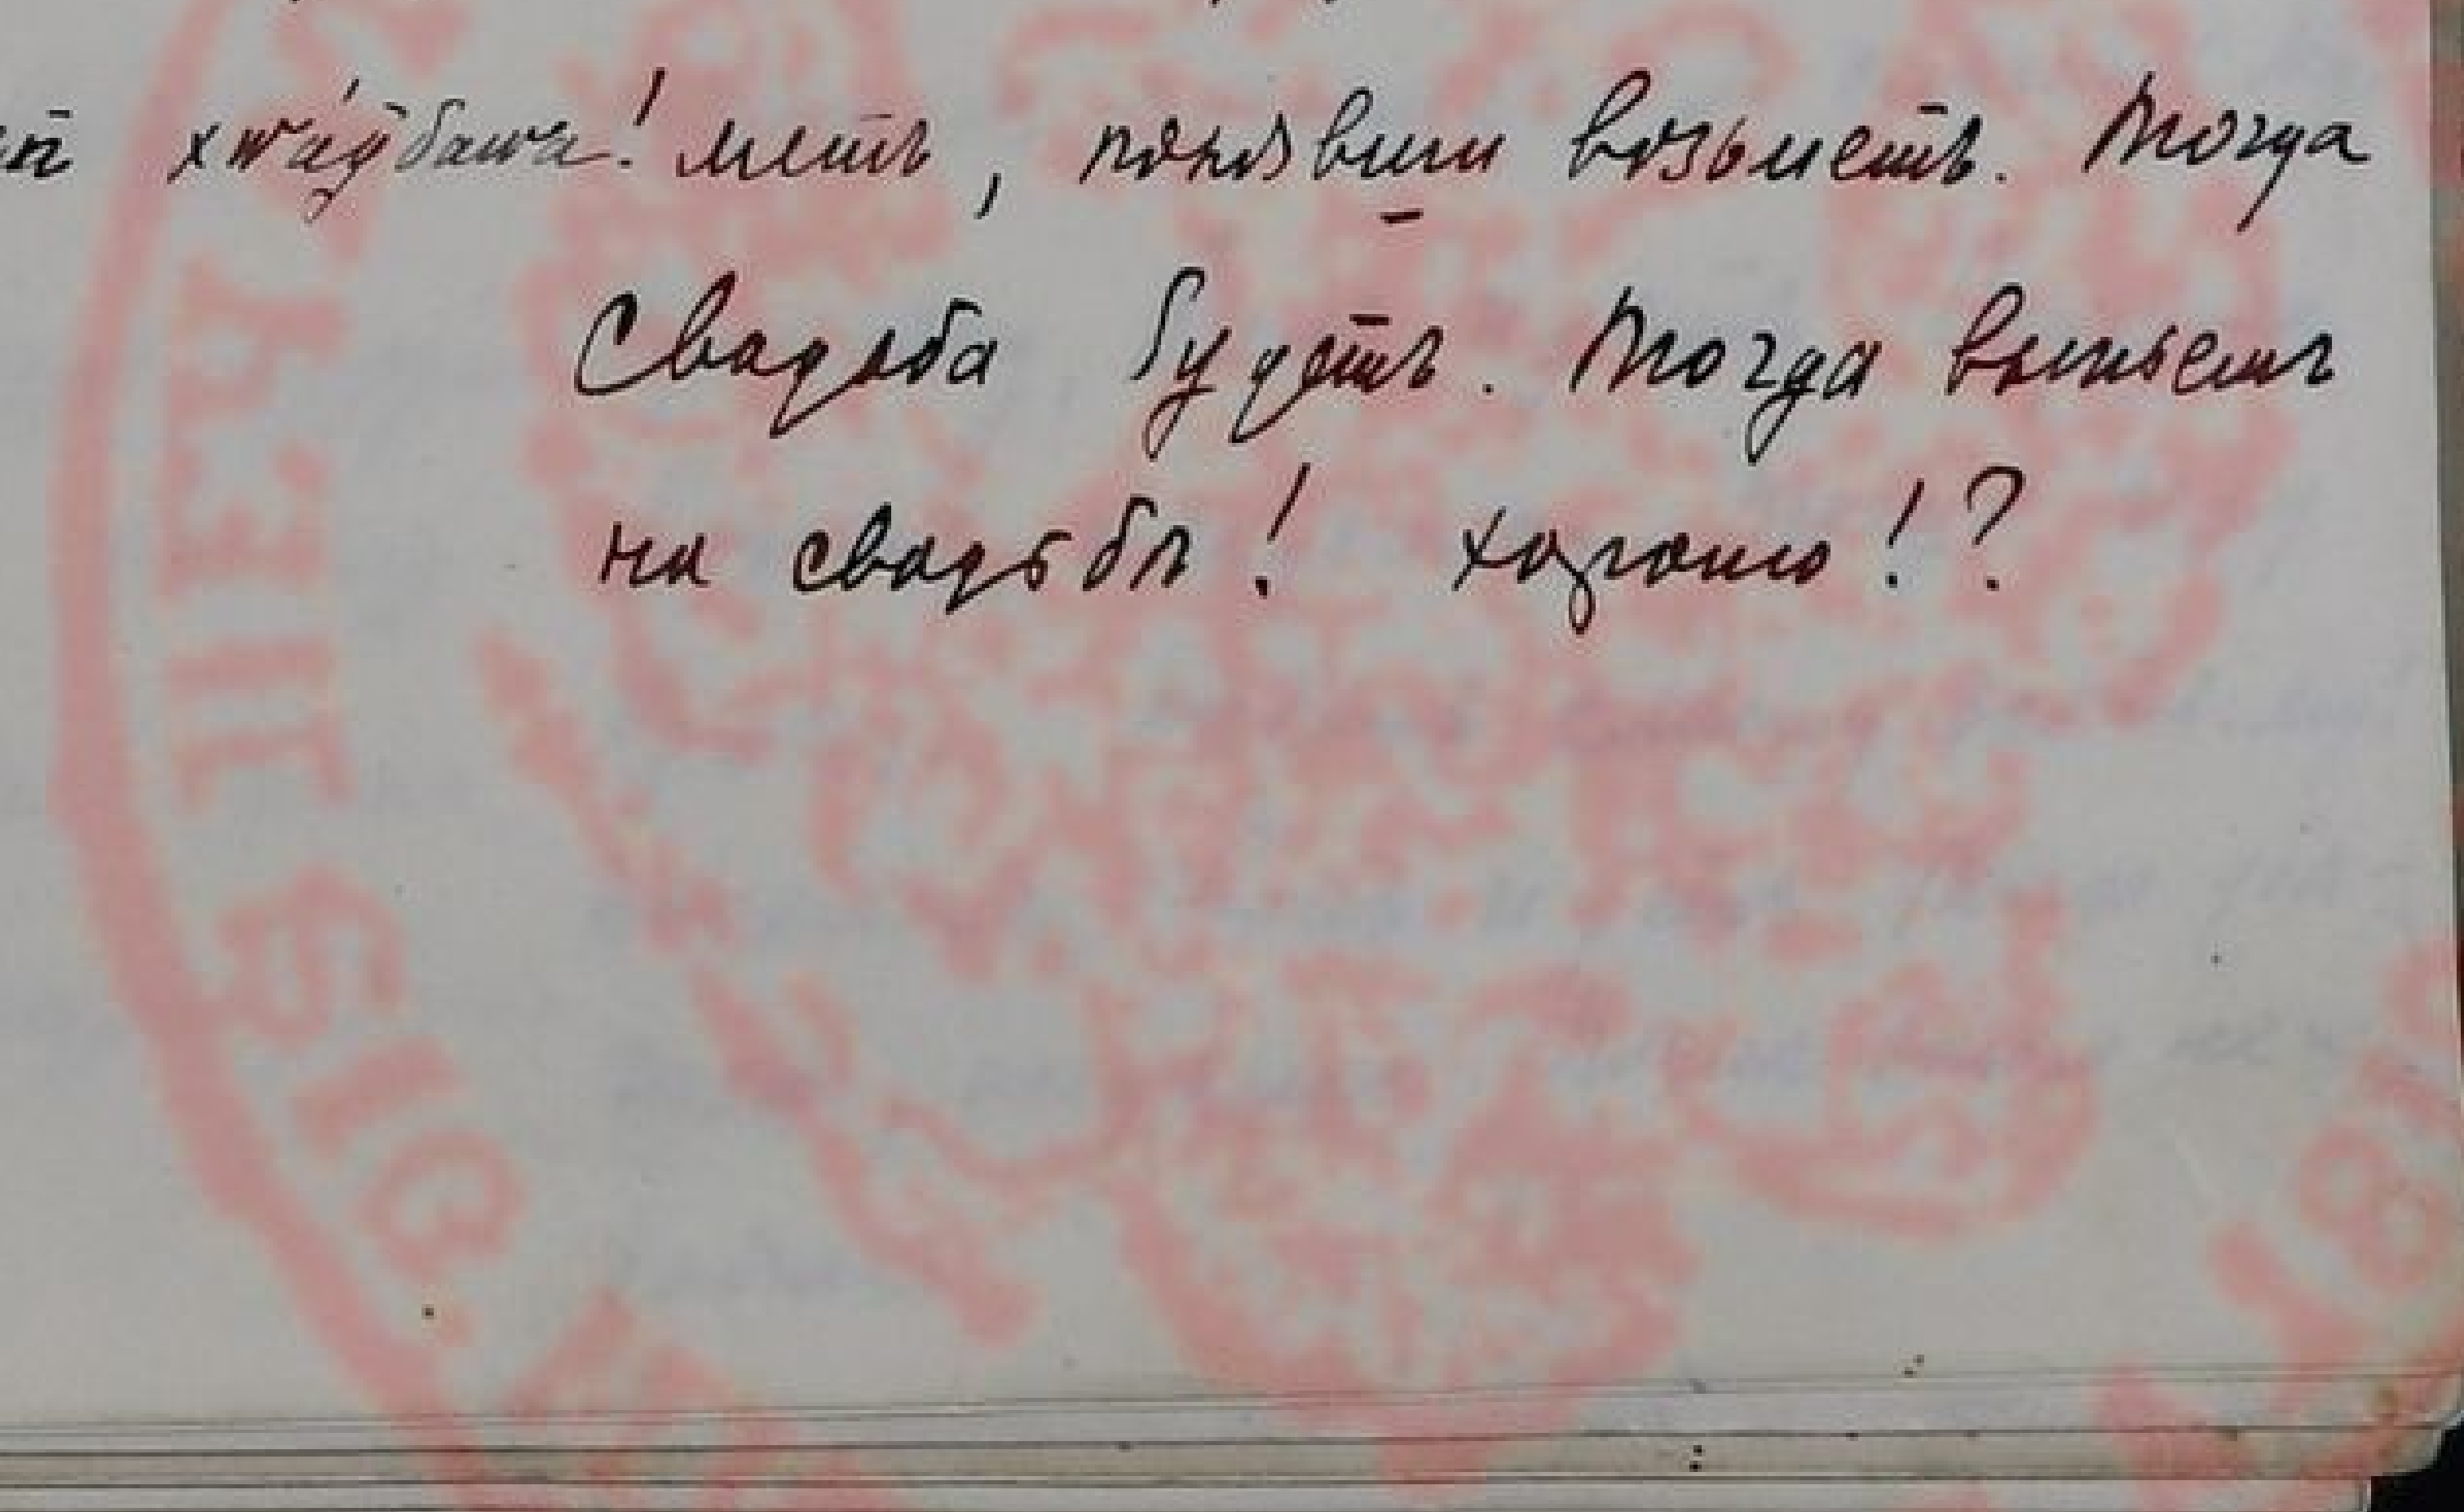 метъ, понявши возьметъ. Тогда
Свадьба будетъ. Тогда выпьемъ
на свадьбѣ! хорошо!?